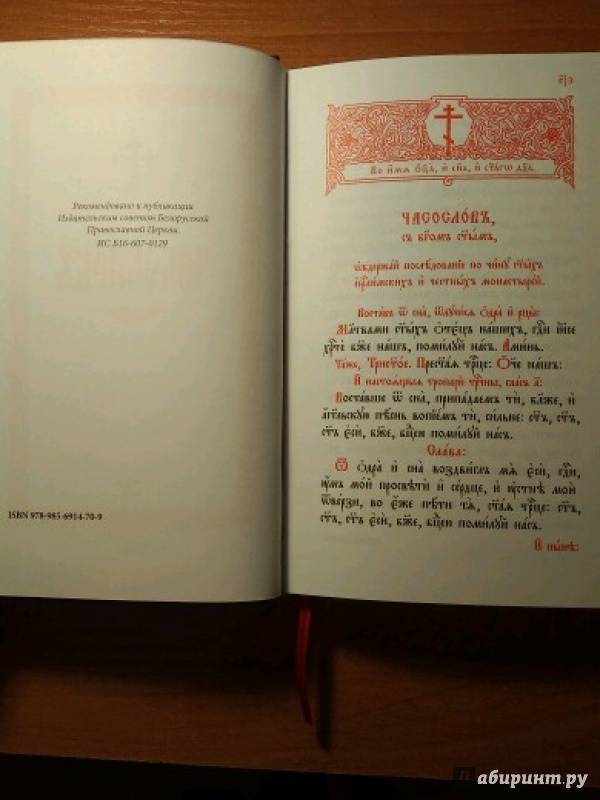 Рекомендовано к публикации
Издательским советом Белорусской
Православной Церкви.
ИС Б16-607-0129
ISBN 978-985-6914-70-9
Во и҆́мѧ ѻ҆ц҃а̀, и҆ сн҃а, и҆ ст҃а́гѡ дх҃а.
ЧАСОСЛО́ВЪ,
съ бг҃омъ ст҃ы́мъ,
ѡ҆держа́й послѣ́дованїѧ по чи́нꙋ ст҃ы́хъ
и҆ честны́хъ монастыре́й.
Воста́въ ѿ сна̀, ѿлꙋчи́сѧ ѻ҆дра̀ и҆ рцы̀:
Мл҃твами ст҃ы́хъ ѻ҆тє́цъ на́шихъ, гдⷭ҇и і҆и҃се
хрⷭ҇тѐ бж҃е на́шъ, поми́лꙋй на́съ. А҆ми́нь.
Та́же, Трист҃о́е. Прест҃а́ѧ трⷪ҇це: Ѻ҆́ч҃е на́шъ:
И҆ настоѧ́щыѧ тропари̑ трⷪ҇чны, гла́съ а҃:
Воста́вше ѿ сна̀, припа́даемъ тѝ, бл҃же, и҆
а҆́гг҃льскꙋю пѣ́снь вопїе́мъ тѝ, си́льне: ст҃ъ, ст҃ъ,
ст҃ъ є҆сѝ, бж҃е, бцⷣею поми́лꙋй на́съ.
Сла́ва:
Ѿ ѻ҆дра̀ и҆ сна̀ воздви́глъ мѧ̀ є҆сѝ, гдⷭ҇и,
ᲂу҆́мъ мо́й просвѣтѝ и҆ се́рдце, и҆ ᲂу҆стнѣ̀ мо́й
ѿве́рзи, во є҆́же пѣ́ти тѧ̀, ст҃а́ѧ трⷪ҇це: ст҃ъ,
ст҃ъ, ст҃ъ є҆сѝ, бж҃е, бцⷣею поми́лꙋй на́съ.
И҆ ны́нѣ:
абиринт.ру